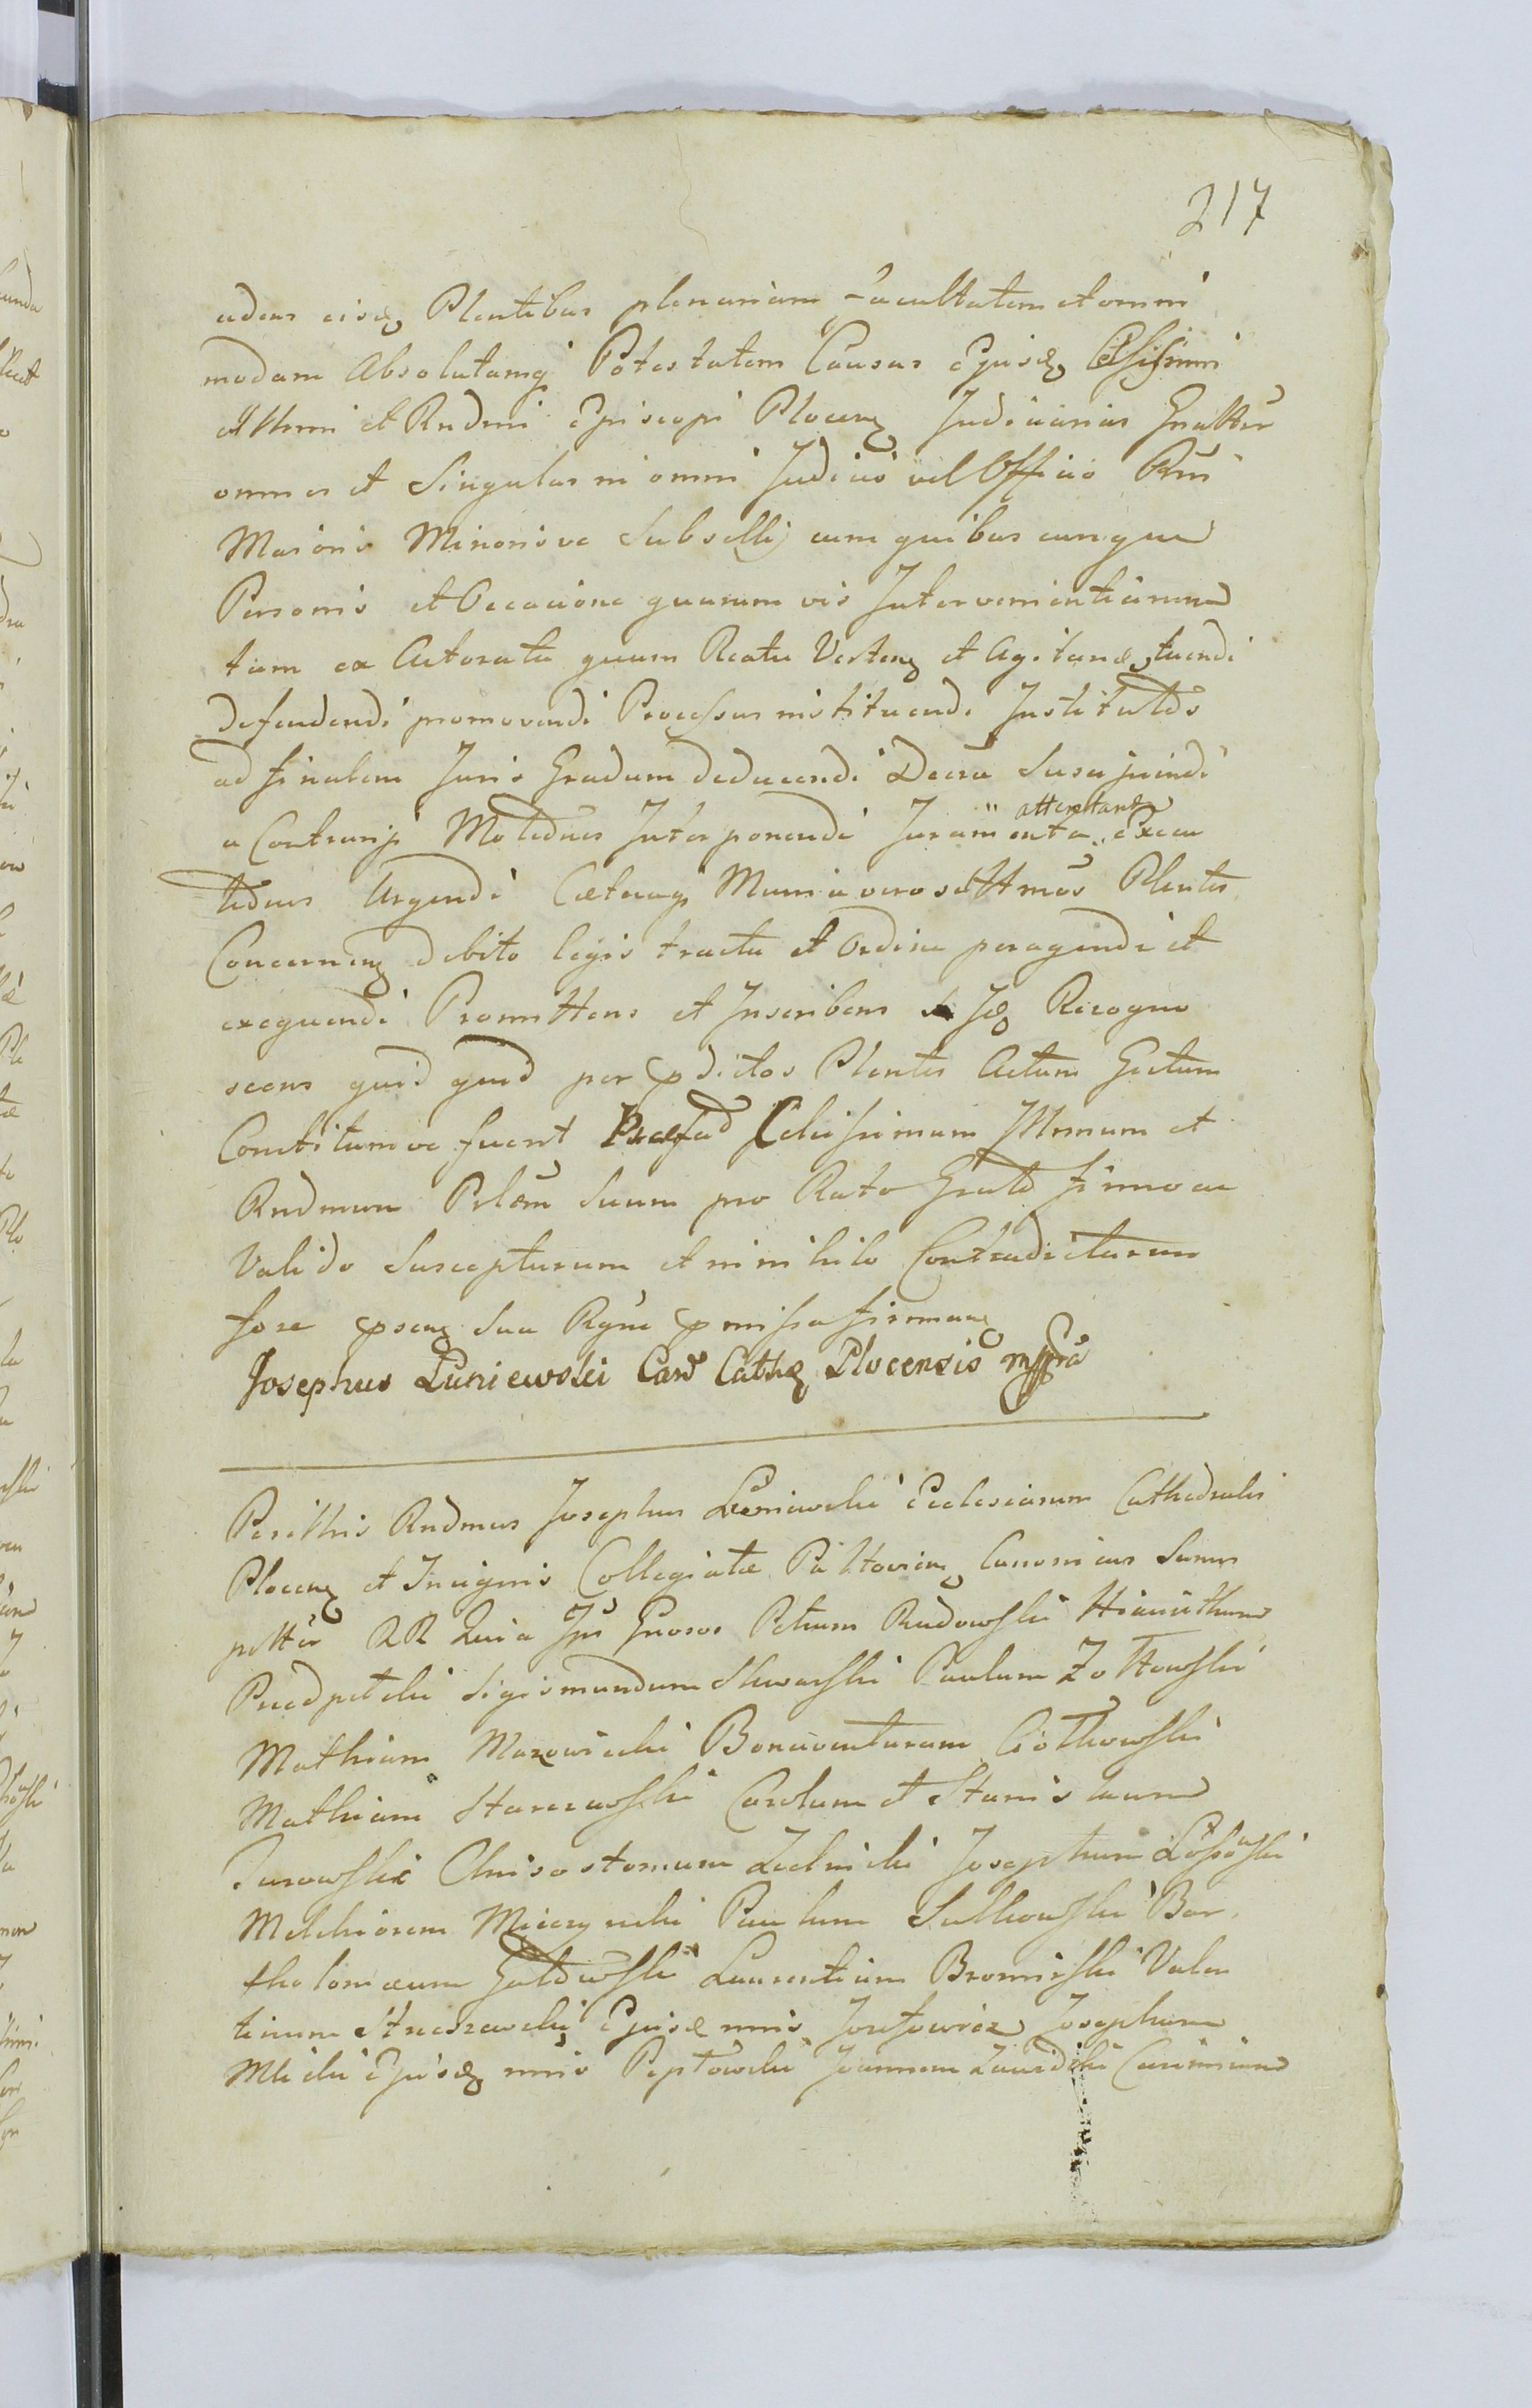 217
adens eisq Plentibus plenariam Facultatem et omni
modam Absolutamq Potestatem Causas Ejusdq Celsissimi
Illmi et Rndmi Episcopi Plocenq Judiciarias Gnalter
omnes et Singulas in omni Judicio vel Officio Rni
Maioris Minorisve Subselli cum quibus cunque
Personis et Occacione quarum vis Intervenientium
tam ex Actoratu quam Reatu Vertenq et Agitandq tuendi
defendendi promovendi Processus instituendi Institutos
ad finalem Juris Gradum deducendi Decra Suscipiendi
a Contrarijs Motiones Interponendi Juramenta attentan Execu
tiones Urgendi Cæteraq Munia
Plentes
Concernenq debito legis tractu et Ordine peragendi et
exequendi Promittens et Inscribens Recogno
scens quid quid per pdictos Plentes Actum Gestum
Constitumve fuerit Præfad Celsissimum Illmum et
Rndmum Prlem Suum pro Rato Grato firmo ac
Valido Suscepturum et in nihilo Contradicturum
fore psenq Sua
pmissa firmanq
Josephus Łuniewski Can Cathq Plocensis mppria
Perillris Rndmus Josephus Łuniewski Ecclesiarum Cathedralis
Plocenq et Insignis Collegiatæ Pultovienq Canonicus
pltter RR
Gnosos Petrum Rudowski Hiacinthum
Sigismundum Skwarski Paulum Zottowski
Mathiam Mazowiecki Bonaventuram Ciołkowski
Mathiam Starczewski Carolum et Stanislaum
Jurowskie Chrisostomum Zielnicki Josephum
Melchiorem Mierzynski Paulum Sulkowski Bar
tholomæum
Laurentium Bromirski Valen
tinum
Ejusd nnis Jozefowicz Josephum
Mlicki Ejusdq nnis Peptowski Joannem Zawidzki Casimirum